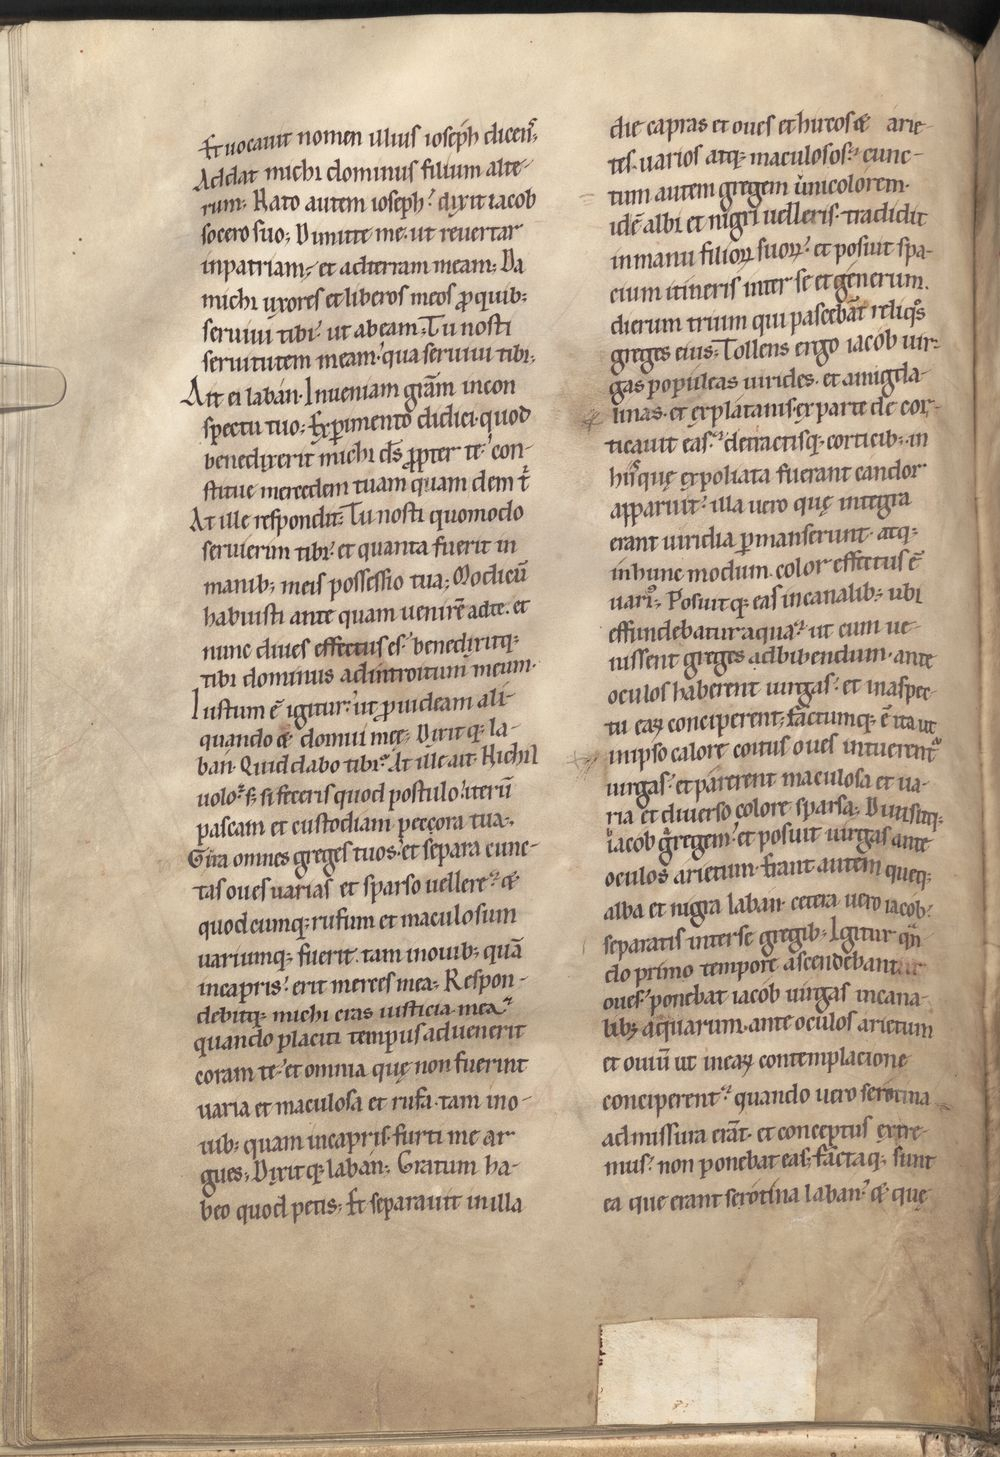 Et uocauit nomen illius ioseph dicens̄;
Addat michi dominus filium alte-
rum; Nato autem ioseph; dixit iacob
socero suo; Dimitte me. ut reuertar
inpatriam; et adterram meam; Da
michi uxores et liberos meos ꝓquib;
seruiui tibi; ut abeam; Tu nosti
seruitutem meam; qua seruiui tibi;
Ait ei laban. Inueniam grām incon
spectu tuo; Exꝑimento didici. quod
benedixerit michi dſ̄ ꝓpter te; con-
stitue mercedem tuam quam dem t̄
At ille respondit; Tu nosti quomodo
seruierim tibi; et quanta fuerit in
manib; meis possessio tua; Modicū
habuisti ante quam uenirē adte. et
nunc diues effectus es; benedixitq;
tibi dominus adintroitum meum.
Iustum ē igitur; ut ꝓuideam ali-
quando & domui meę; Dixitq; la-
ban. Quid dabo tibi; At ille ait. Nichil
uolo; s; si feceris quod postulo; iterū
pascam et custodiam peccora tua;
Gira omnes greges tuos; et separa cunc-
tas oues uarias et sparso uellere; &
quodcumq; rufum et maculosum
uariumq; fuerit. tam inouib; quā
incapris; erit merces mea; Respon-
debitq; michi cras iusticia mea;
quando placiti tempus aduenerit
coram te; et omnia quę non fuerint
uaria et maculosa et rufa. tam ino-
uib; quam incapris. furti me ar
gues; Dixitq; laban; Gratum ha-
beo quod petis; Et separauit inilla
die capras et oues et hircos & arie-
tes. uarios atq; maculosos; cunc-
tum autem gregem unicolorem.
idē albi et nigri uelleris. tradidit
inmanu filioꝝ suoꝝ; et posuit spa-
cium itineris inter se et generum.
dierum trium qui pascebāt reliqꝰs
greges eius; Tollens ergo iacob uir-
gas populeas uirides. et amigda-
linas. et explatanis. exparte decor-
ticauit eas; detractisq; corticib; in
hiis quę expoliata fuerant candor
apparuit; illa uero quę integra
erant uiridia ꝑmanserunt. atq;
inhunc modum color effectus ē
uariꝰ; Posuitq; eas incanalib; ubi
effundebatur aqua; ut cum ue-
nissent greges adbibendum. ante
oculos haberent uirgas; et inaspec-
tu eaꝝ conciperent; factumq; ē ita ut
inipso calore coitus oues intuerentꝰ
uirgas; et parerent maculosa et ua-
ria et diuerso colore sparsa; Diuisitq;
iacob gregem; et posuit uirgas ante
oculos arietum. Erant autem queq;
alba et nigra laban. cetera uero iacob;
separatis interse gregib; Igitur qn̄
do primo tempore ascendebantur
oues; ponebat iacob uirgas incana-
libꝫ aquarum. ante oculos arietum
et ouiū ut ineaꝝ contemplacione
conciperent; quando uero serotina
admissura erāt. et conceptus extre-
mus; non ponebat eas; factaq; sunt
ea que erant serotina laban; & que